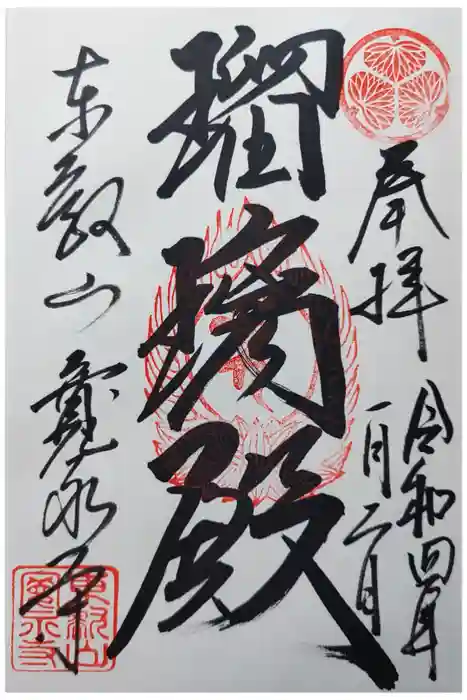 奉拝
令和四年
一月二日
瑠璃殿
東叡山
寛永寺
東叡山
寛永寺